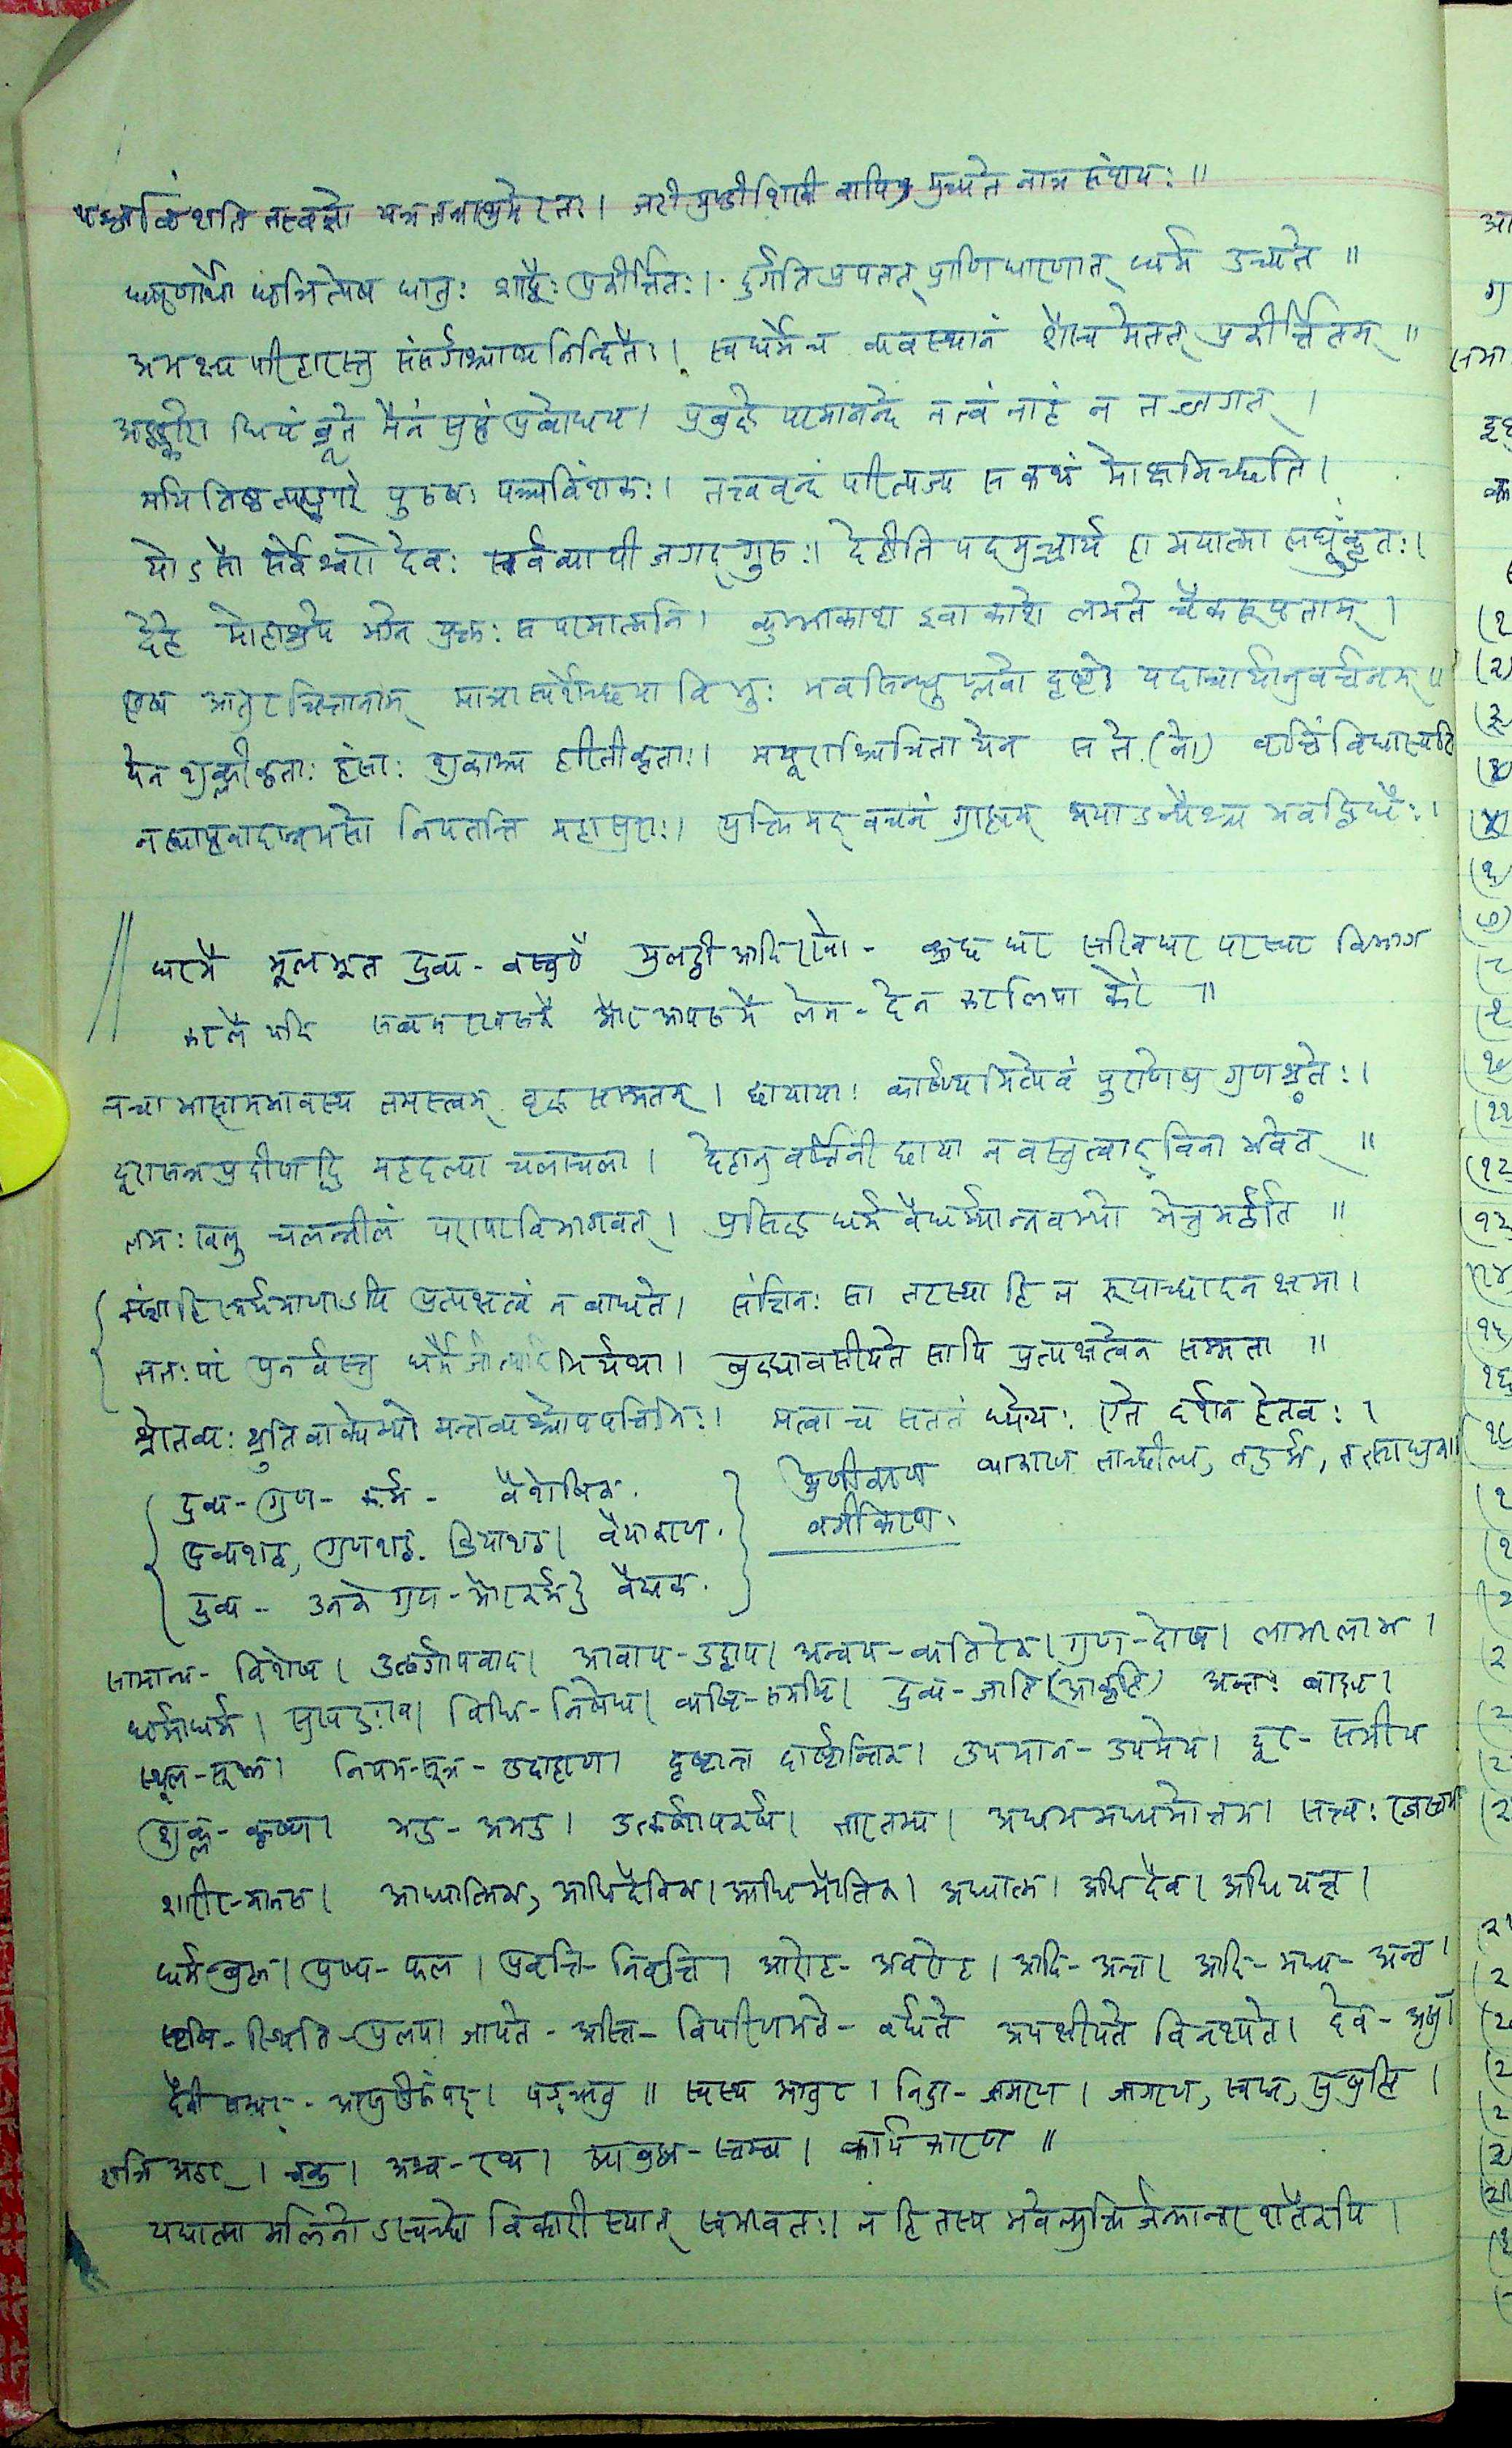 पञ्चविंशति तत्त्वज्ञो यत्र तत्राश्रमे रतः। जटी मुण्डी शिखी वापि मुच्यते नात्र संशयः॥
धारणार्थो धृञित्येष धातुः शाब्दैः प्रकीर्त्तितः। दुर्गति प्रपतत् प्राणि धारणात् धर्म उच्यते॥
अभक्ष्य परिहारस्तु संसर्गश्चाप्यनिन्दितैः। स्वधर्मे च व्यवस्थानं शौच मेतत् प्रकीर्त्तितम्॥
अहङ्कारो धियं ब्रूते मैनं सुप्तं प्रबोधय। प्रबुद्धे परमानन्दे न त्वं नाहं न तज्जगत्।
मयि तिष्ठत्यहङ्कारे पुरुषः पञ्चविंशकः। तत्त्ववृन्दं परित्यज्य स कथं मोक्षमिच्छति।
योऽसौ सर्वेश्वरो देवः सर्वव्यापी जगद्गुरुः। देहीति पदमुच्चार्य हा मयात्मा लघूकृतः।
देहे मोहाश्रये भग्ने युक्तः स परमात्मनि। कुम्भाकाश इवाकाशे लभते चैकरूपताम्।
एष आतुर चित्तानाम् मात्रास्पर्शेच्छया विभुः भवसिन्धु प्लवो दृष्टो यदाचार्यानुवर्त्तनम्॥
येन शुक्लीकृताः हंसाः शुकाश्च हरितीकृताः। मयूराश्चित्रिता येन स ते (मे) वृत्तिं विधास्यति
न ह्याप्तवादान्नभसो निपतन्ति महासुराः। युक्तिमद् वचनं ग्राह्यम् मयाऽन्यैश्च भवद्विधैः।
घरमें मूलभूत द्रव्य - वस्तुएँ मुलट्ठी आदि रखना - कुछ घर सखि घर परस्पर विभाग
करलें यदि सब न रख सकें और आपसमें लेन - देन कर लिया करें॥
न चाभासामभावस्य तमस्त्वम् वृद्ध सम्मतम्। छायायाः कार्ष्ण्यमित्येवं पुराणेषु गुणश्रुतेः।
दूरासन्न प्रदीपादि महदल्पा चलाचला। देहानुवर्त्तिनी छाया न वस्तुत्वाद् विना भवेत्॥
तमः खलु चलन्नीलं परापरविभागवत्। प्रसिद्ध धर्म वैधर्म्यान्नवभ्यो भेत्तुमर्हति॥
संज्ञा हि स्मर्यमाणाऽपि प्रत्यक्षत्वं न बाधते। संज्ञिनः सा तटस्था हि न रूपाच्छादन क्षमा।
ततः परं पुनर्वस्तु धर्मैर्जात्यादिभिर्यथा। बुद्ध्यावसीयते सापि प्रत्यक्षत्वेन सम्मता॥
श्रोतव्यः श्रुतिवाक्येभ्यो मन्तव्यश्चोपपत्तिभिः। मत्वा च सततं ध्येयः एते दर्शन हेतवः।
द्रव्य - गुण - कर्म - वैशेषिक.
श्रेणीकरण व्याकरण ताच्छील्य, तद्धर्म, तत्साधुका॥
द्रव्यशब्द, गुणशब्द. क्रियाशब्द। वैयाकरण.
वर्गीकरण.
द्रव्य - उनके गुण - और कर्म वैद्यक.
सामान्य - विशेष। उत्सर्गापवाद। आवाप - उद्वाप। अन्वय - व्यतिरेक। गुण - दोष। लाभालाभ।
धर्माधर्म। सुखदुःख। विधि - निषेध। व्यष्टि - समष्टि। द्रव्य - जाति (आकृति) अन्तः बाह्य।
स्थूल - सूक्ष्म। नियम - सूत्र - उदाहरण। दृष्टान्त दार्ष्टान्तिक। उपमान - उपमेय। दूर - समीप
शुक्ल - कृष्ण। उत्कर्षापकर्ष। तारतम्य। अधम मध्यमोत्तम। सत्त्व: रजस्तम
शारीर - मानस। आध्यात्मिक, आधिदैविक। आधिभौतिक। अध्यात्म। अधिदैव। अधियज्ञ।
धर्म पुष्प - फल। प्रवृत्ति - निवृत्ति। आरोह - अवरोह। आदि - अन्त। आदि - मध्य - अन्त।
सृष्टि - स्थिति - प्रलय। जायते - अस्ति - विपरिणमते - वर्धते अपक्षीयते विनश्यते। देव - असुर।
दैवी सम्पद् - आसुरी संपद्। षड्ऋतु॥ स्वस्थ आतुर। निद्रा - जागरण। जागरण, स्वप्न, सुषुप्ति।
रात्रि अहर्। अश्व - रथ। कार्य कारण॥
यद्यात्मा मलिनोऽस्वच्छो विकारी स्यात् स्वभावतः। न हि तस्य भवेन्मुक्तिर्जन्मान्तर शतैरपि।